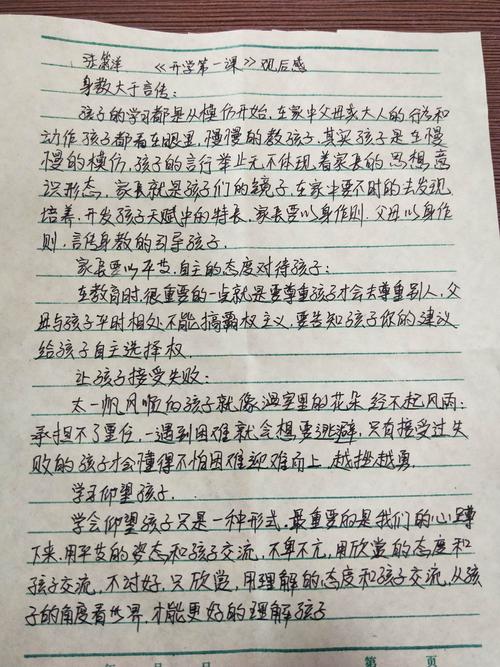 张 洋 《开学第一课》观后感
身教大于言传:
孩子的学习都是从模仿开始,在家中父母亲大人的行为和
动作,孩子都看在眼里,慢慢的教孩子,其实孩子是在慢
慢的模仿,孩子的言行举止无不体现着家长的思想,意
识形态,家长就是孩子们的镜子,在家中要不时的去发现
培养,开发孩子天赋中的特长,家长要以身作则,父母以身作
则,言传身教的引导孩子.
家长要以平等.自主的态度对待孩子:
在教育时,很重要的一点就是要尊重孩子才会去尊重别人,父
母与孩子平时相处不能搞霸权主义,要告知孩子你的建议
给孩子自主选择权.
让孩子接受失败:
太一帆风顺的孩子就像温室里的花朵经不起风雨:
承担不了重任,一遇到困难就会想要逃避,只有接受过失
败的孩子才会懂得不怕困难迎难而上,越挫越勇.
学习仰望孩子.
学会仰望孩子只是一种形式,最重要的是我们的心蹲
下来,用平等的姿态和孩子交流,不卑不亢,用欣赏的态度和
孩子交流,不讨好,只欣赏,用理解的态度和孩子交流,从孩
子的角度看世界,才能更好的理解孩子
年 月 日 第 页